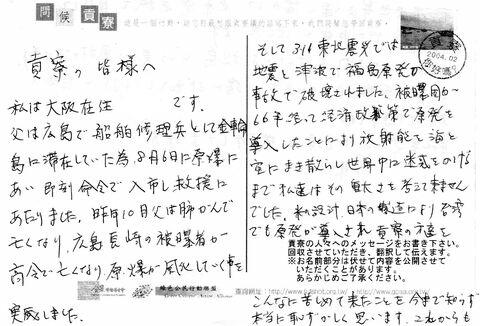 問候貢寮
貢寮の皆様へ
私は大阪在住 です。
父は広島で船舶修理兵として金輪
島に滞在していた為8月6日に原爆に
あい即刻命令で入市し救援に
あたりました。昨年10月父は肺がんで
亡くなり、広島長崎の被曝者が
高令で亡くなり原爆が風化していく事を
実感しました。
2004.02
そして311東北震災では
地震と津波で福島原発が
事故で破壊されました。被曝国が
66年経って経済政策で原発を
導入したことにより放射能を海と
空にまき散らし世界中に迷惑をかける
まで私達はその重大さを考えて来ません
でした。米の設計、日本の製造により台湾
でも原発が導入され貢寮の方達を
貢寮の人々へのメッセージをお書き下さい。
回収させていただき、翻訳して伝えます。
※お名前部分は伏せて内容を公開させて
いただくことがあります。
あらかじめご了承ください。
綠色公民行動聯盟
こんなに苦しめて来たことを今まで知らず
本当に恥ずかしく思います。これからも